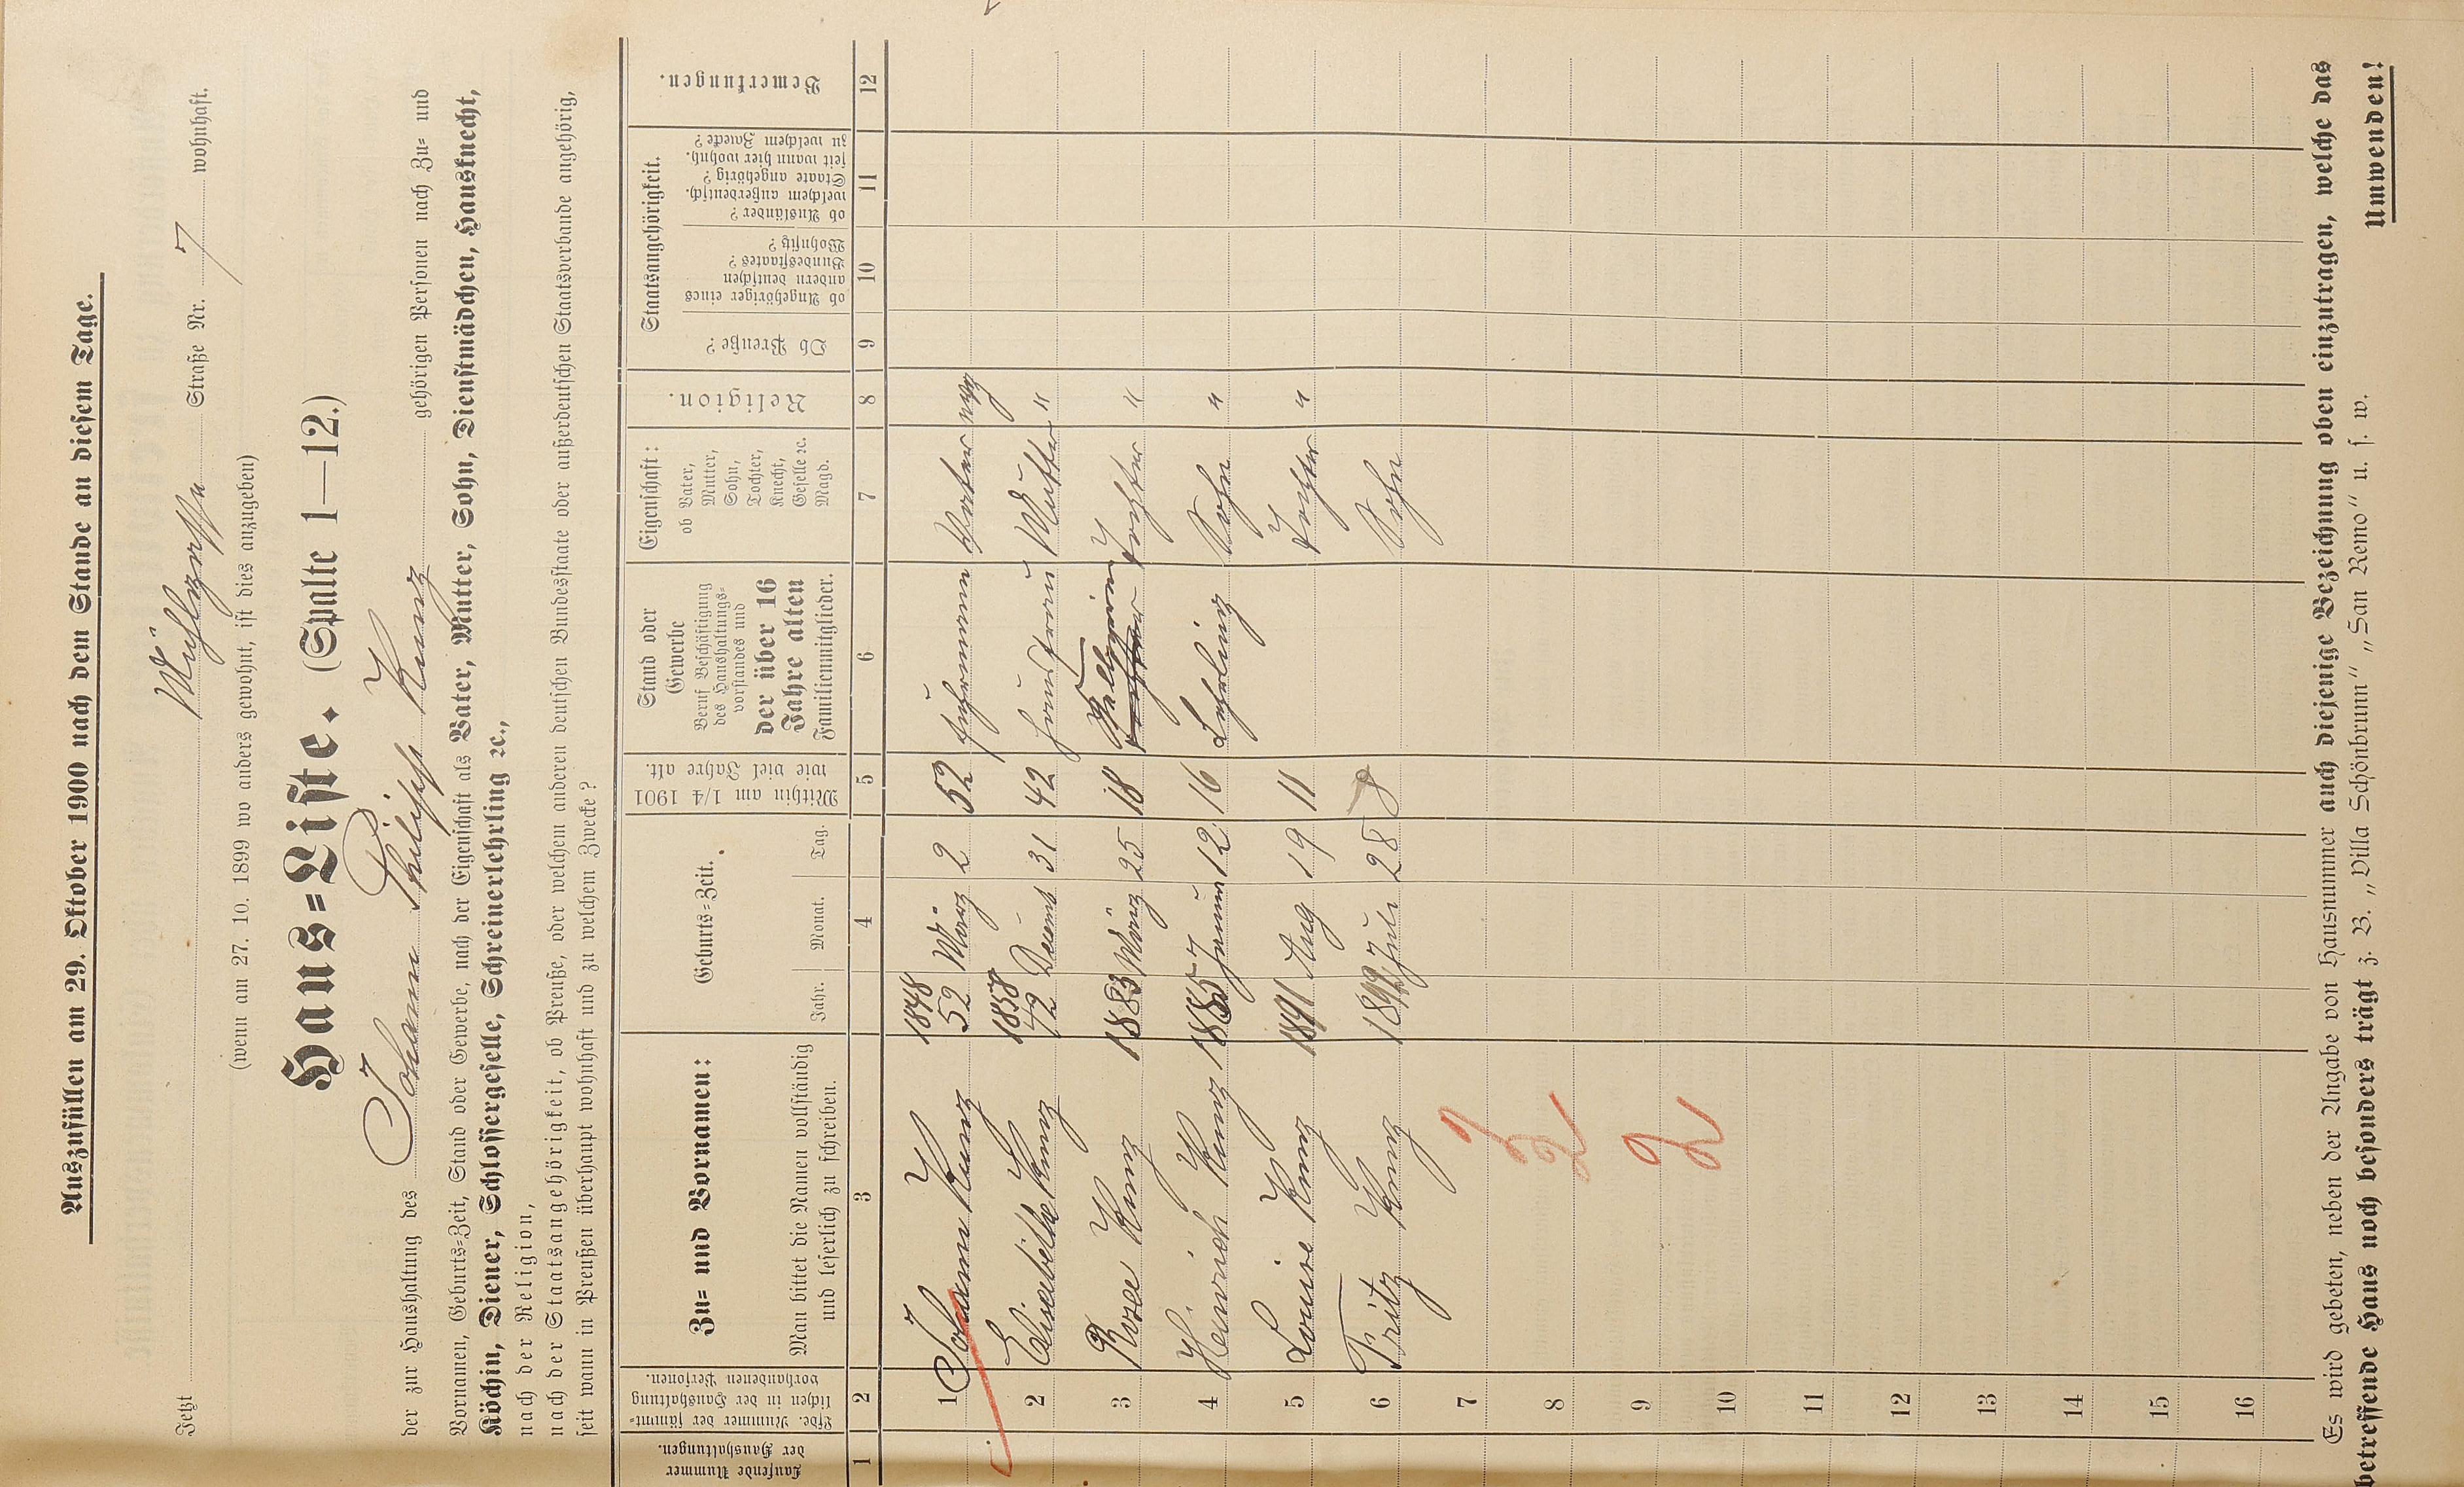 Auszufüllen am 29. Oktober 1900 nach dem Stande an diesem Tage.
Jetzt Mühlgasse Straße Nr. 7 wohnhaft.
(wenn am 27. 10. 1899 wo anders gewohnt, ist dies anzugeben)
Haus=Liste. (Spalte 1—12.)
der zur Haushaltung des Johann Philipp Kunz gehörigen Personen nach Zu= und
Vornamen, Geburts=Zeit, Stand oder Gewerbe, nach der Eigenschaft als Vater, Mutter, Sohn, Dienstmädchen, Hausknecht,
Köchin, Diener, Schlossergeselle, Schreinerlehrling ꝛc.,
nach der Religion,
nach der Staatsangehörigkeit, ob Preuße, oder welchem anderen deutschen Bundesstaate oder außerdeutschen Staatsverbande angehörig,
seit wann in Preußen überhaupt wohnhaft und zu welchem Zwecke?
Laufende Nummer
der Haushaltungen.
Lfde. Nummer der sämmt=
lichen in der Haushaltung
vorhandenen Personen.
Zu= und Vornamen:
Man bittet die Namen vollständig
und leserlich zu schreiben.
Geburts=Zeit.
Jahr. Monat. Tag.
Mithin am 1/4 1901
wie viel Jahre alt.
Stand oder
Gewerbe
Beruf Beschäftigung
des Haushaltungs=
vorstandes und
der über 16
Jahre alten
Familienmitglieder.
Eigenschaft:
ob Vater,
Mutter,
Sohn,
Tochter,
Knecht,
Geselle ꝛc.
Magd.
Religion.
Staatsangehörigkeit.
Ob Preuße?
ob Angehöriger eines
andern deutschen
Bundesstaates?
Wohnsitz?
ob Ausländer?
welchem außerdeutsch.
Staate angehörig?
seit wann hier wohnh.
zu welchem Zwecke?
Bemerkungen.
1 2 3 4 5 6 7 8 9 10 11 12
1 Johann Kunz 1848 52 März 2 52 Fuhrmann Vater
2 Elisabetha Kunz 1858 42 Decemb 31 42 Hausfrau Mutter "
3 Rosa Kunz 1883 März 25 18 Tochter "
4 Heinrich Kunz 1885 Januar 12 16 Lehrling Sohn "
5 Louise Kunz 1891 Aug 19 11 Tochter "
6 Fritz Kunz 1892 Juli 28 8 Sohn
7
8
9
10
11
12
13
14
15
16
Es wird gebeten, neben der Angabe von Hausnummer auch diejenige Bezeichnung oben einzutragen, welche das
betreffende Haus noch besonders trägt z. B. „Villa Schönbrunn" „San Remo" u. s. w.
Umwenden!